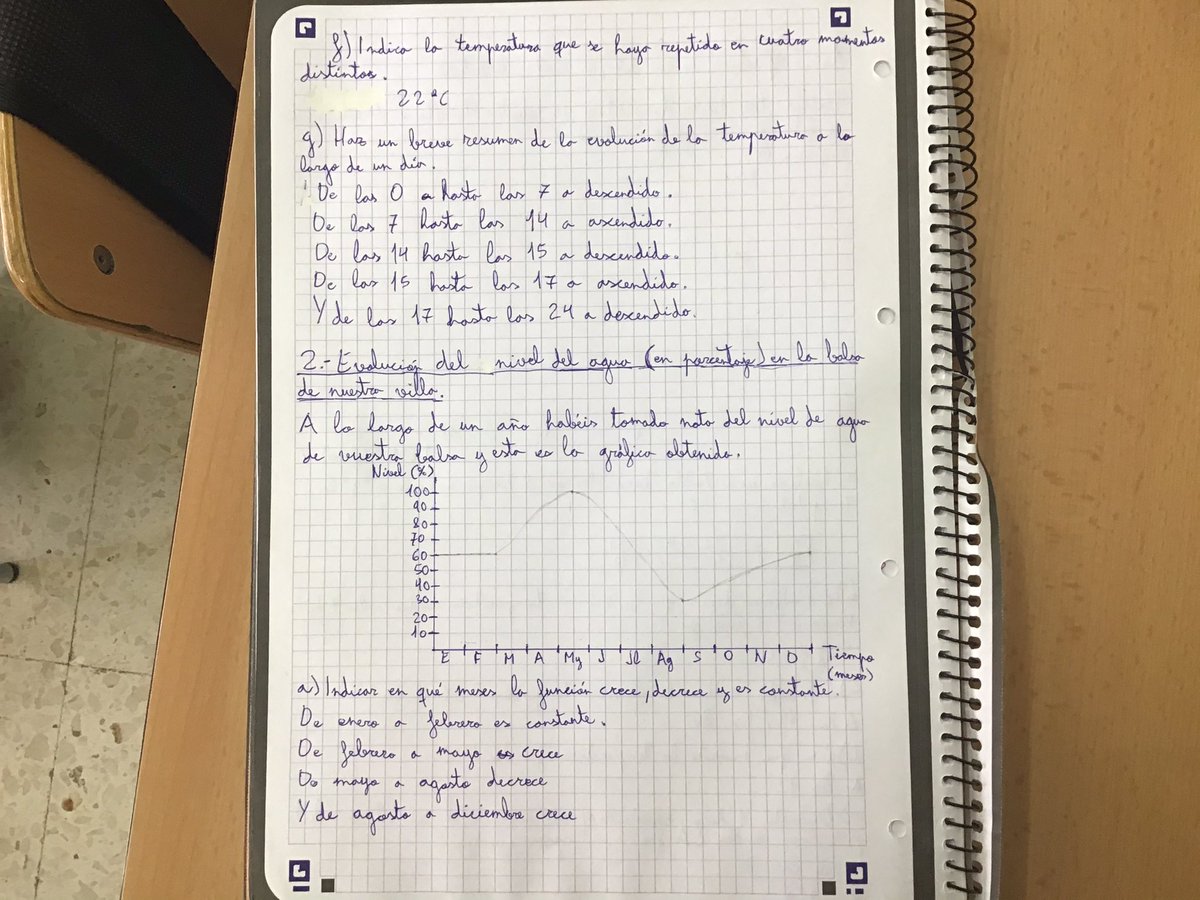 f) Indica la temperatura que se haya repetido en cuatro momentos
distintos.
22ºC
g) Haz un breve resumen de la evolución de la temperatura a lo
largo de un día.
De las 0 a hasta las 7 a descendido.
De las 7 hasta las 14 a ascendido.
De las 14 hasta las 15 a descendido.
De las 15 hasta las 17 a ascendido.
Y de las 17 hasta las 24 a descendido.
2.- Evolución del nivel del agua (en porcentaje) en la balsa
de nuestra villa.
A lo largo de un año habéis tomado nota del nivel de agua
de vuestra balsa y esta es la gráfica obtenida.
Nivel (%)
100
90
80
70
60
50
40
30
20
10
E F M A My J Jl Ag S O N D Tiempo
(meses)
a) Indicar en qué meses la función crece, decrece y es constante.
De enero a febrero es constante.
De febrero a mayo crece
De mayo a agosto decrece
Y de agosto a diciembre crece